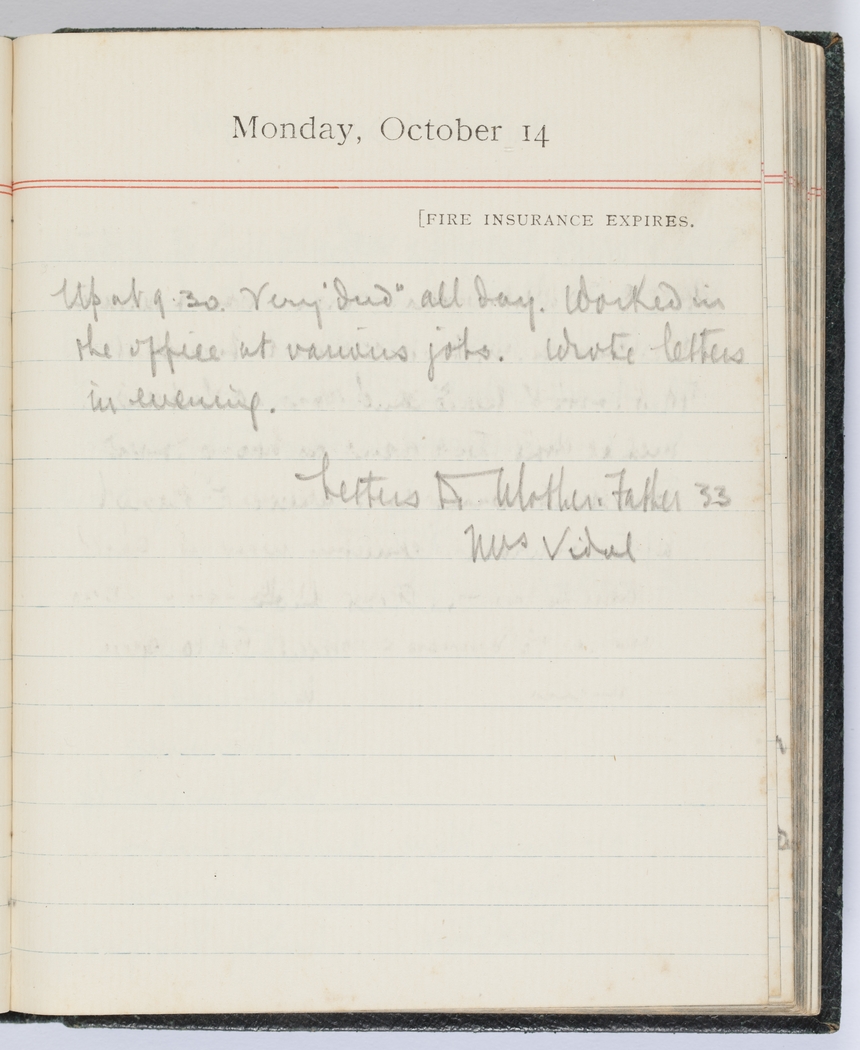 Monday, October 14
[FIRE INSURANCE EXPIRES.
Up at 9.30. Very "dud" all day. Worked in
the office at various jobs. Wrote letters
in evening.
Letters to Mother. Father 33
Mrs Vidal